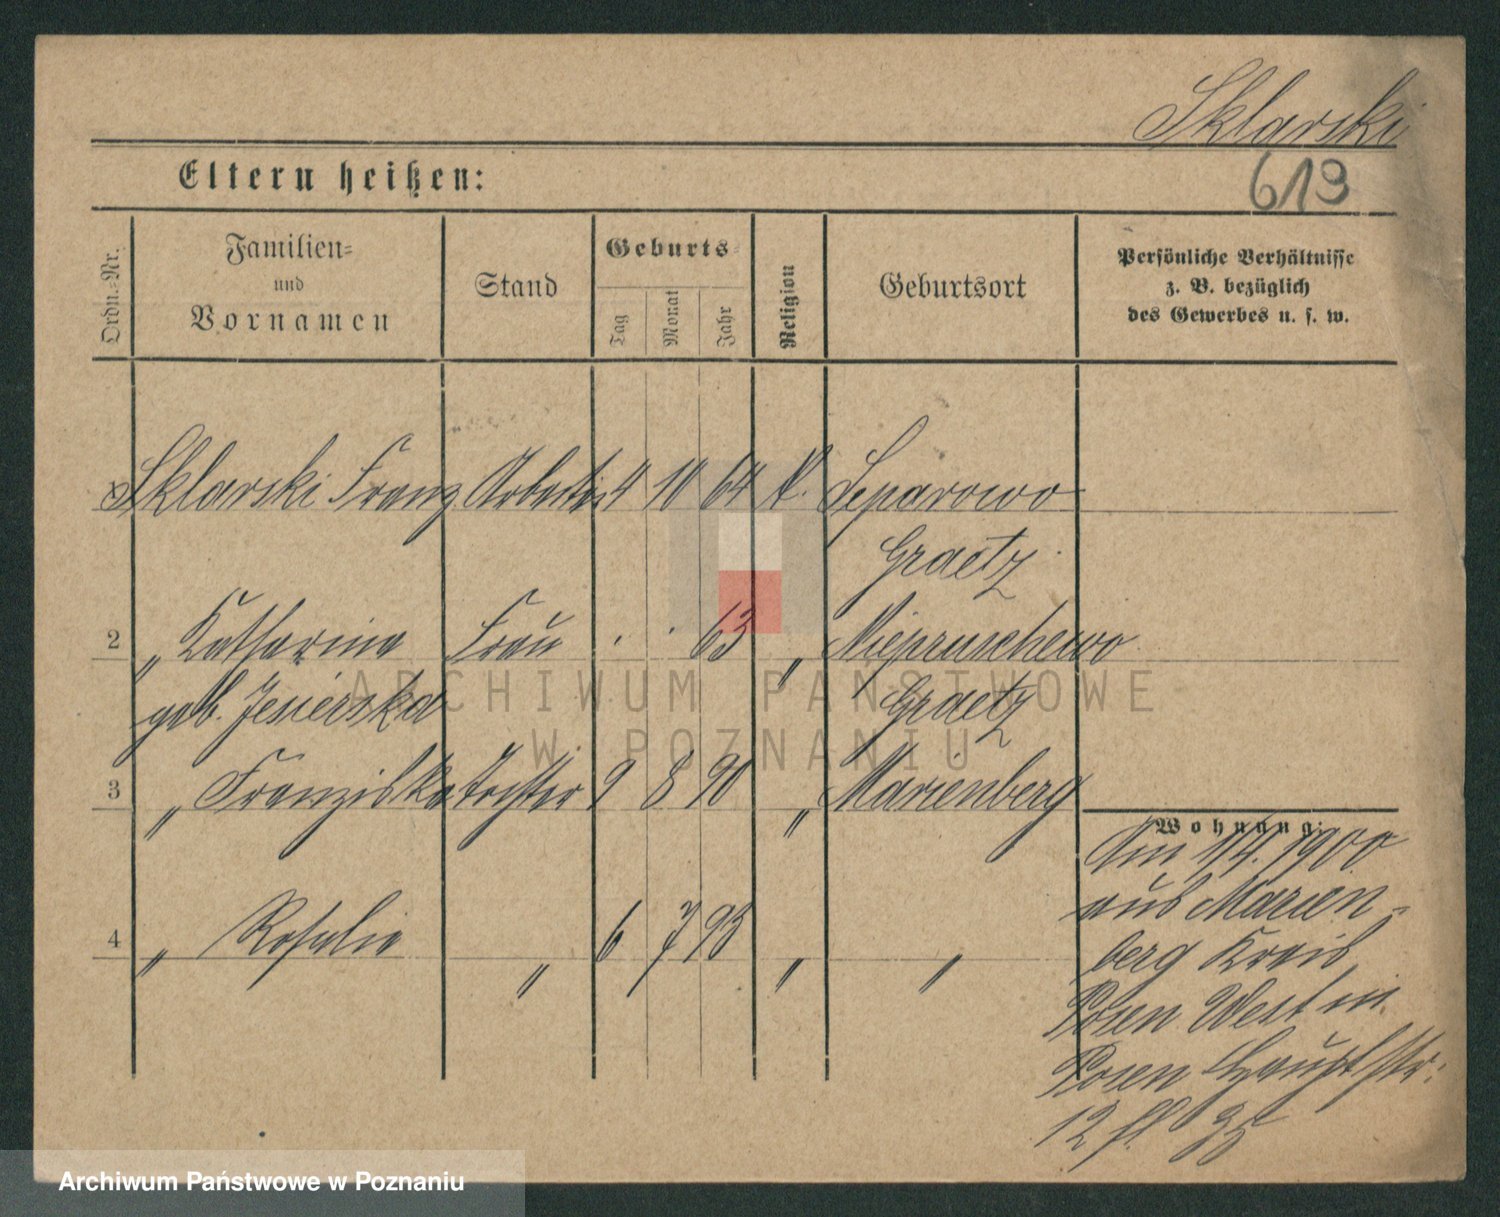 Sklarski
Eltern heißen:
619
Ordn.-Nr.
Familien-
und
Vornamen
Stand
Geburts-
Tag
Monat
Jahr
Religion
Geburtsort
Persönliche Verhältnisse
z. B. bezüglich
des Gewerbes u. s. w.
Sklarski Franz Arbeiter 4 10 64 K. Separowo
Graetz
2 „ Katharina Frau . . 63 „ Niepruschewo
geb. Jesierska Graetz
3 „ Franziska Tochter 9 8 90 „ Marienberg
Wohnung:
Am 1/4. 1900
aus Marien-
4 „ Rosalie „ 6 7 93 „ „
berg Kreis
Posen West in
Posen Hauptstr:
12
ARCHIWUM PAŃSTWOWE
W POZNANIU
Archiwum Państwowe w Poznaniu